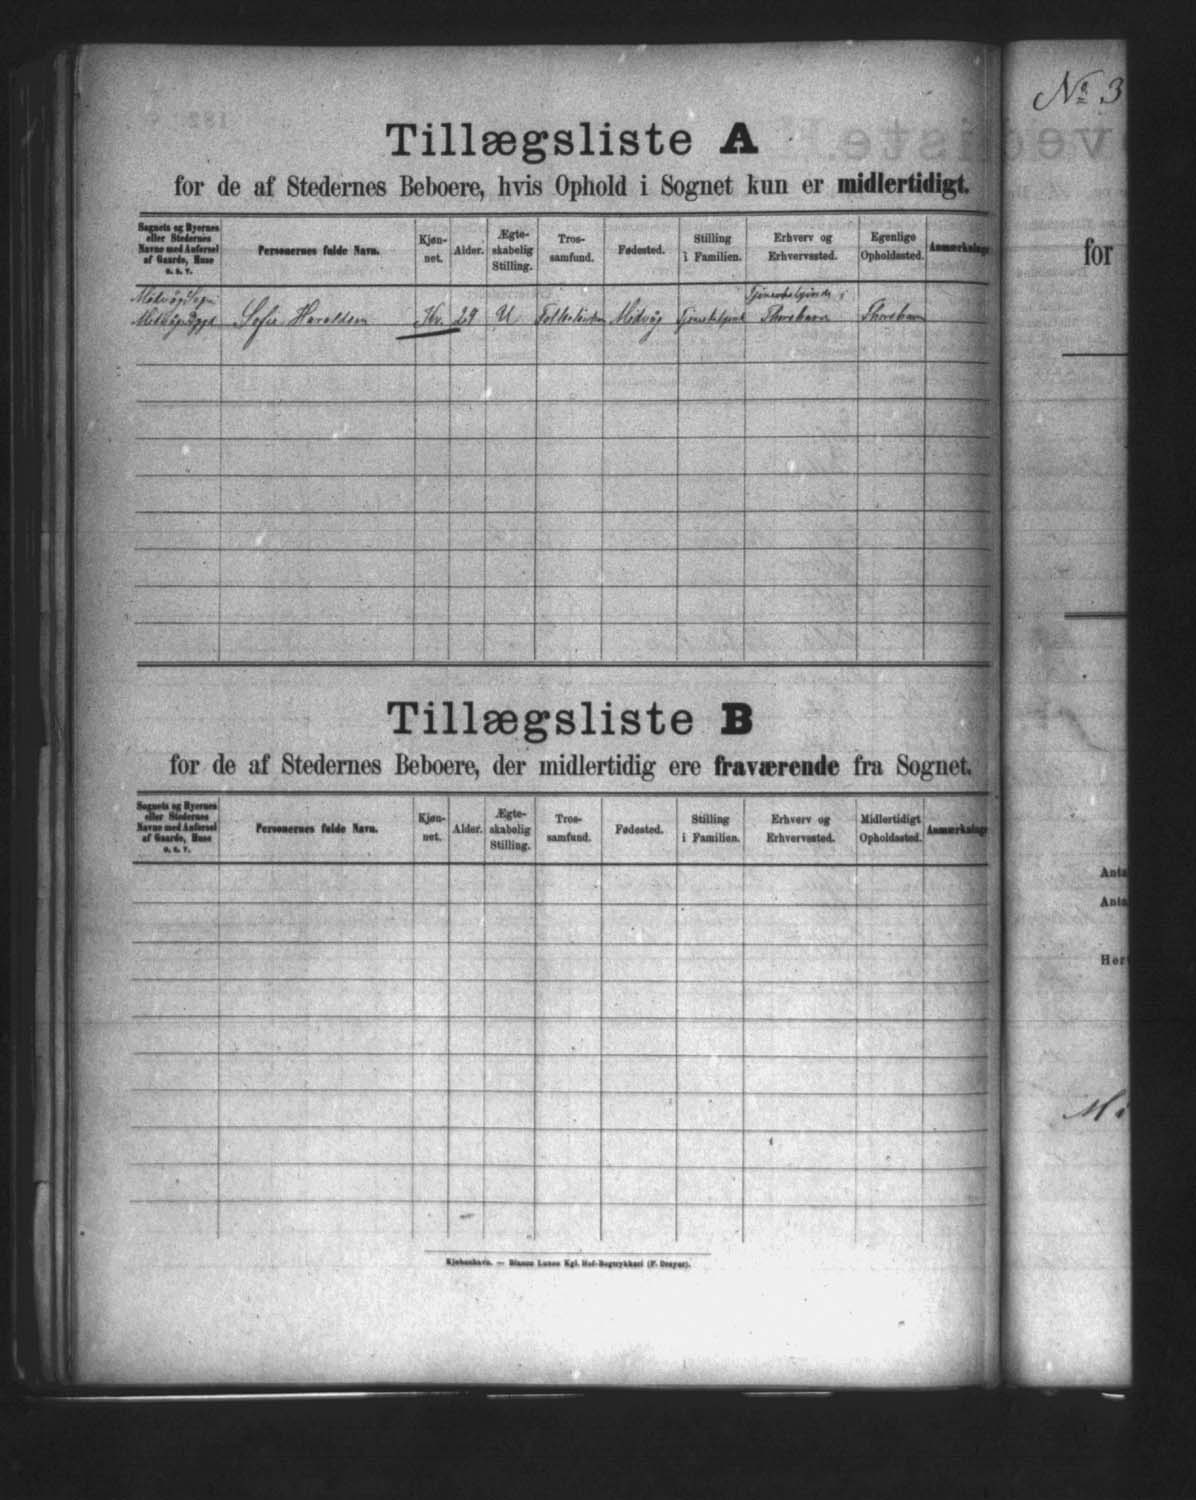 Tillægsliste A
for de af Stedernes Beboere, hvis Ophold i Sognet kun er midlertidigt.
Sognets og Byernes eller Stedernes Navne med Anførsel af Gaarde, Huse o. s. v.
Personernes fulde Navn.
Kjøn-net.
Alder.
Ægte-skabelig Stilling.
Tros-samfund.
Fødested.
Stilling i Familien.
Erhverv og Erhvervssted.
Egenlige Opholdssted.
Anmærkninge
Midvåg Sogn
Midvåg Bygd
Sofie Haraldsen
Kv.
29
U
Folkekirken
Midvåg
Tjenestepige
Thorshavn
Thorshavn
Tillægsliste B
for de af Stedernes Beboere, der midlertidig ere fraværende fra Sognet.
Sognets og Byernes eller Stedernes Navne med Anførsel af Gaarde, Huse o. s. v.
Personernes fulde Navn.
Kjøn-net.
Alder.
Ægte-skabelig Stilling.
Tros-samfund.
Fødested.
Stilling i Familien.
Erhverv og Erhvervssted.
Midlertidigt Opholdssted.
Anmærkninge
Kjøbenhavn. — Bianco Lunos Kgl. Hof-Bogtrykkeri (F. Dreyer).
№ 3
for
Anta
Anta
Her
Mi